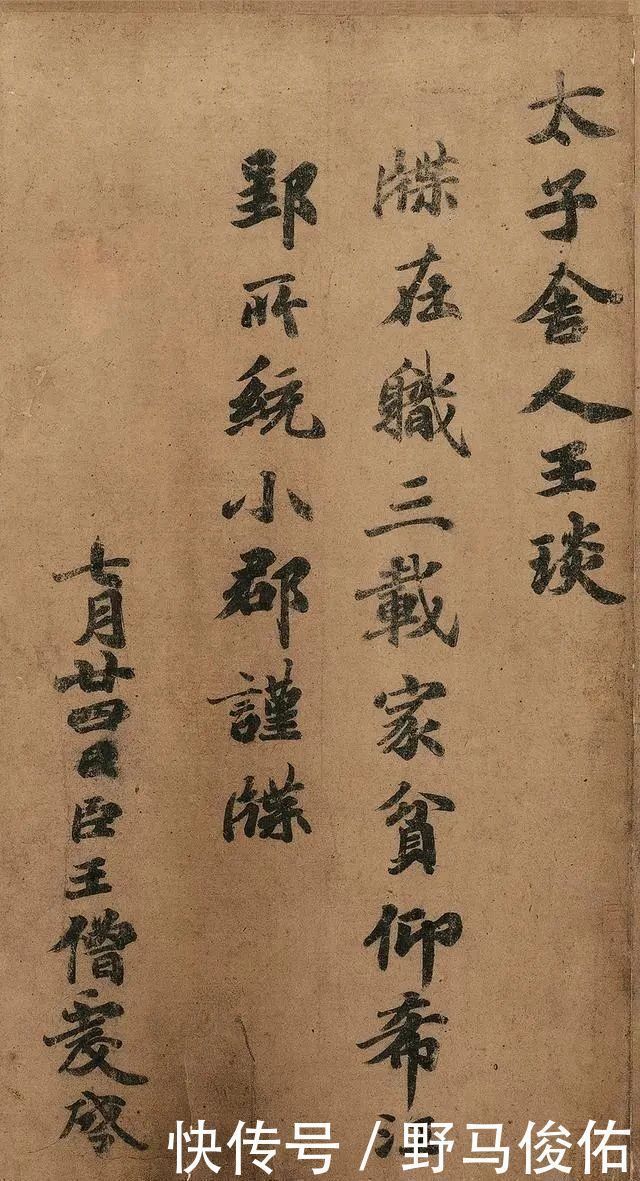 太子舍人王琰
牒在職三載家貧仰希江
郢所統小郡謹牒
七月廿四日臣王僧虔啓
快传号／野马俊佑